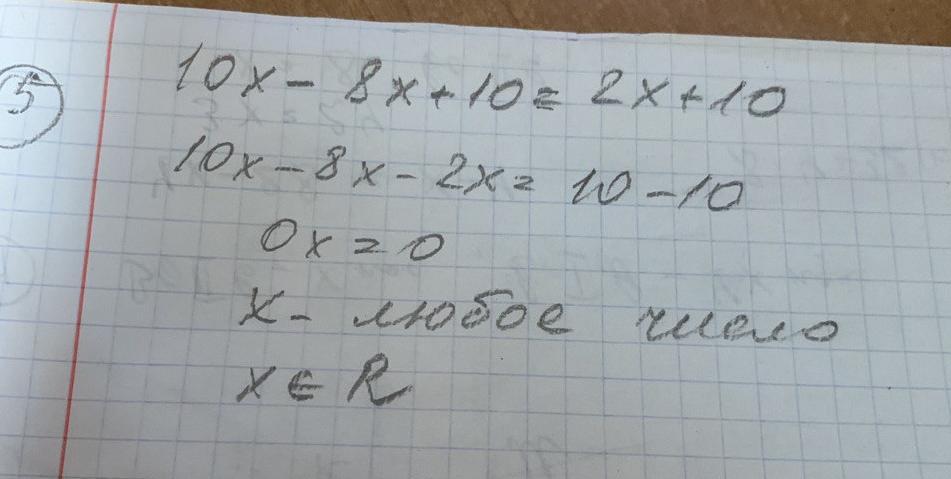 5
10x - 8x + 10 = 2x + 10
10x - 8x - 2x = 10 - 10
0x = 0
x - любое число
x ∈ R